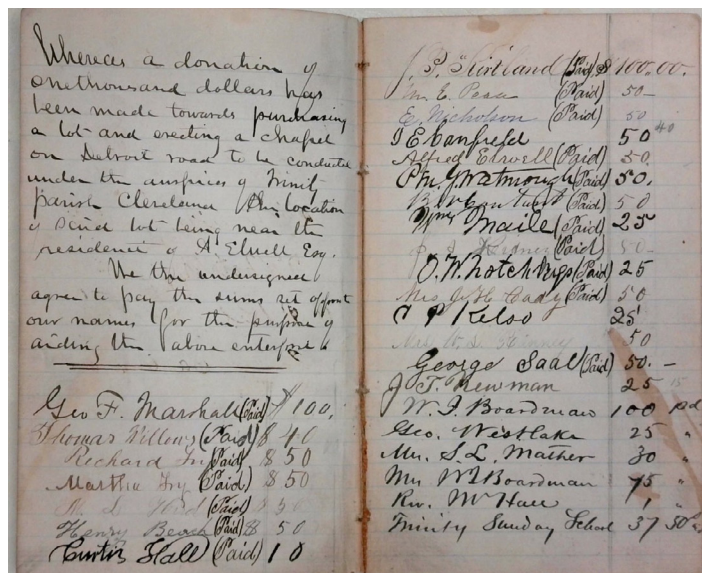 Whereas a donation of
onethousand dollars has
been made towards purchasing
a lot and erecting a Chapel
on Detroit road to be conducted
under the auspices of Trinity
parish Cleveland the location
of said lot being near the
residence of A. Elwell Esq.
We the undersigned
agree to pay the sums set opposite
our names for the purpose of
aiding the above enterprise
Geo F. Marshall (Paid) $100.
Thomas Willows (Paid) $40
Richard Fry (Paid) $50
Martha Fry (Paid) $50
(Paid) 50
Henry Beach (Paid) $50
Curtis Hall (Paid) 10
J. P. Kirtland (Paid) $100.00.
Mr. E. Pease (Paid) 50-
E. Nicholson (Paid) 50
I E Canfield 50 40
Alfred Elwell (Paid) 50.
P. M. G. Watmough (Paid) 50.
(Paid) 50
Wm Maile (Paid) 25
(Paid) 50-
O. W. Hotchkiss (Paid) 25
Mrs J. H. Cady (Paid) 50
C P Kelso 25
Mrs 50
George Saal (Paid) 50.-
J T. Newman 25 15
W. J. Boardman 100 pd
Geo. Westlake 25 "
Mr. S. L. Mather 30 "
Mrs W J Boardman 75 "
Rev. Mr Hall 1, "
Trinity Sunday School 37 50 "